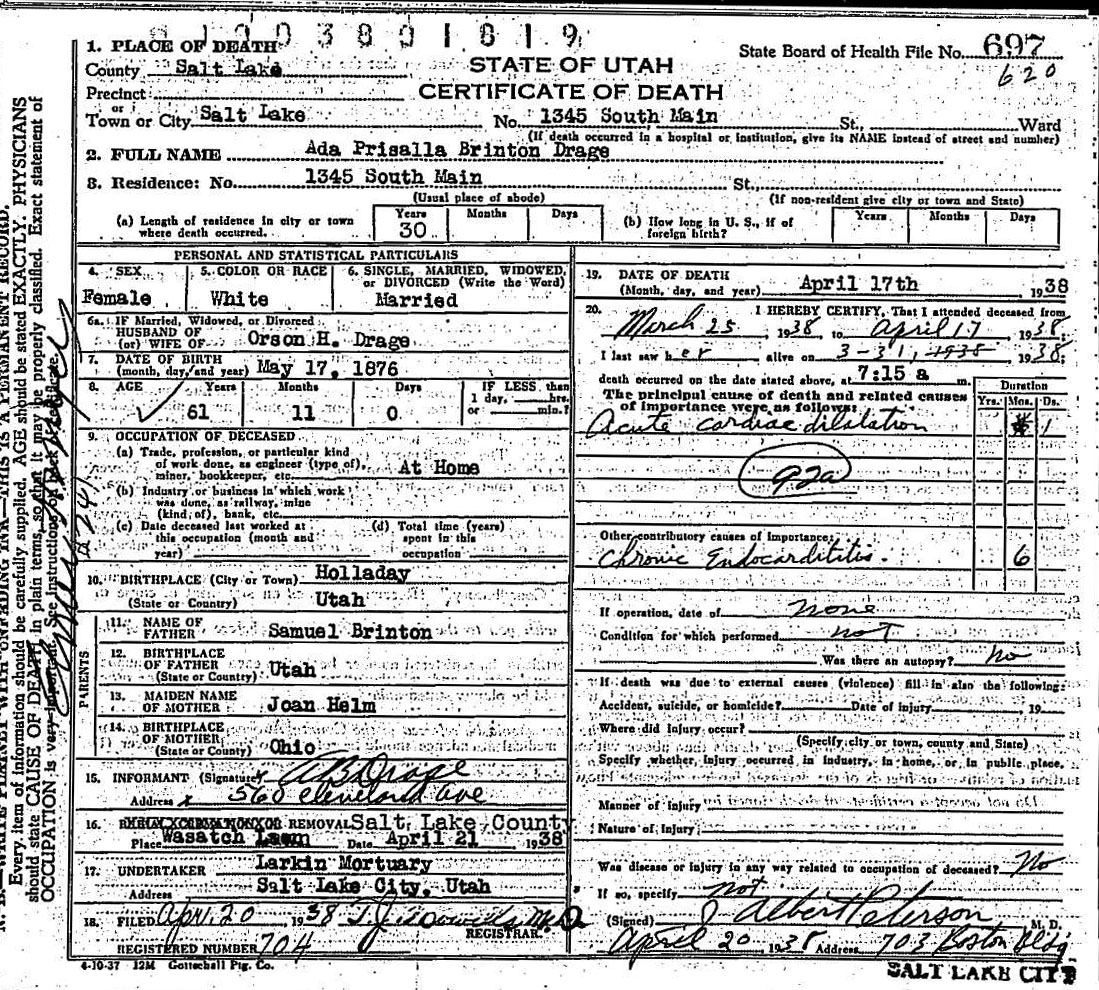 1003801819
1. PLACE OF DEATH
County Salt Lake
Precinct
or
Town or City Salt Lake
STATE OF UTAH
CERTIFICATE OF DEATH
State Board of Health File No. 697
620
No. 1345 South Main St., Ward
(If death occurred in a hospital or institution, give its NAME instead of street and number)
2. FULL NAME Ada Prisalla Brinton Drage
3. Residence: No. 1345 South Main St.,
(Usual place of abode) (If non-resident give city or town and State)
(a) Length of residence in city or town where death occurred. Years 30 Months Days
(b) How long in U. S., if of foreign birth? Years Months Days
PERSONAL AND STATISTICAL PARTICULARS
4. SEX Female
5. COLOR OR RACE White
6. SINGLE, MARRIED, WIDOWED, or DIVORCED (Write the Word) Married
6a. If Married, Widowed, or Divorced
HUSBAND OF
(or) WIFE OF Orson H. Drage
7. DATE OF BIRTH
(month, day, and year) May 17, 1876
8. AGE Years 61 Months 11 Days 0 IF LESS than 1 day, hrs. or min.?
9. OCCUPATION OF DECEASED
(a) Trade, profession, or particular kind of work done, as engineer (type of), miner, bookkeeper, etc. At Home
(b) Industry or business in which work was done, as railway, mine (kind of), bank, etc.
(c) Date deceased last worked at this occupation (month and year)
(d) Total time (years) spent in this occupation
10. BIRTHPLACE (City or Town) Holladay
(State or Country) Utah
PARENTS
11. NAME OF FATHER Samuel Brinton
12. BIRTHPLACE OF FATHER (State or Country) Utah
13. MAIDEN NAME OF MOTHER Joan Helm
14. BIRTHPLACE OF MOTHER (State or County) Ohio
15. INFORMANT (Signature) x A B Drage
Address x 560 Cleveland ave
16. REMOVAL Salt Lake County
Place Wasatch Lawn Date April 21 1938
17. UNDERTAKER Larkin Mortuary
Address Salt Lake City, Utah
18. FILED Apr. 20 1938 T. J. M.D.
REGISTRAR.
REGISTERED NUMBER 704
4-10-37 12M Gottschall Ptg. Co.
19. DATE OF DEATH
(Month, day, and year) April 17th 1938
20. I HEREBY CERTIFY, That I attended deceased from
March 25 1938 to April 17 1938;
I last saw her alive on 3-31, 1938 1938;
death occurred on the date stated above, at 7:15 a m.
The principal cause of death and related causes of importance were as follows:
Duration
Yrs. Mos. Ds.
Acute cardiac dilatation 1
92a
Other contributory causes of Importance:
Chronic Endocarditis. 6
If operation, date of none
Condition for which performed not
Was there an autopsy? No
If death was due to external causes (violence) fill in also the following:
Accident, suicide, or homicide? Date of injury 19
Where did injury occur?
(Specify city or town, county and State)
Specify whether injury occurred in industry, in home, or in public place,
Manner of injury
Nature of injury
Was disease or injury in any way related to occupation of deceased? No
If so, specify not
(Signed) J Albert Peterson M. D.
April 20 1938 Address 703 Boston Bldg
SALT LAKE CITY
N. B.—WRITE PLAINLY WITH UNFADING INK—THIS IS A PERMANENT RECORD.
Every item of information should be carefully supplied. AGE should be stated EXACTLY. PHYSICIANS
should state CAUSE OF DEATH in plain terms, so that it may be properly classified. Exact statement of
OCCUPATION is very important. See instructions on back of certificate.